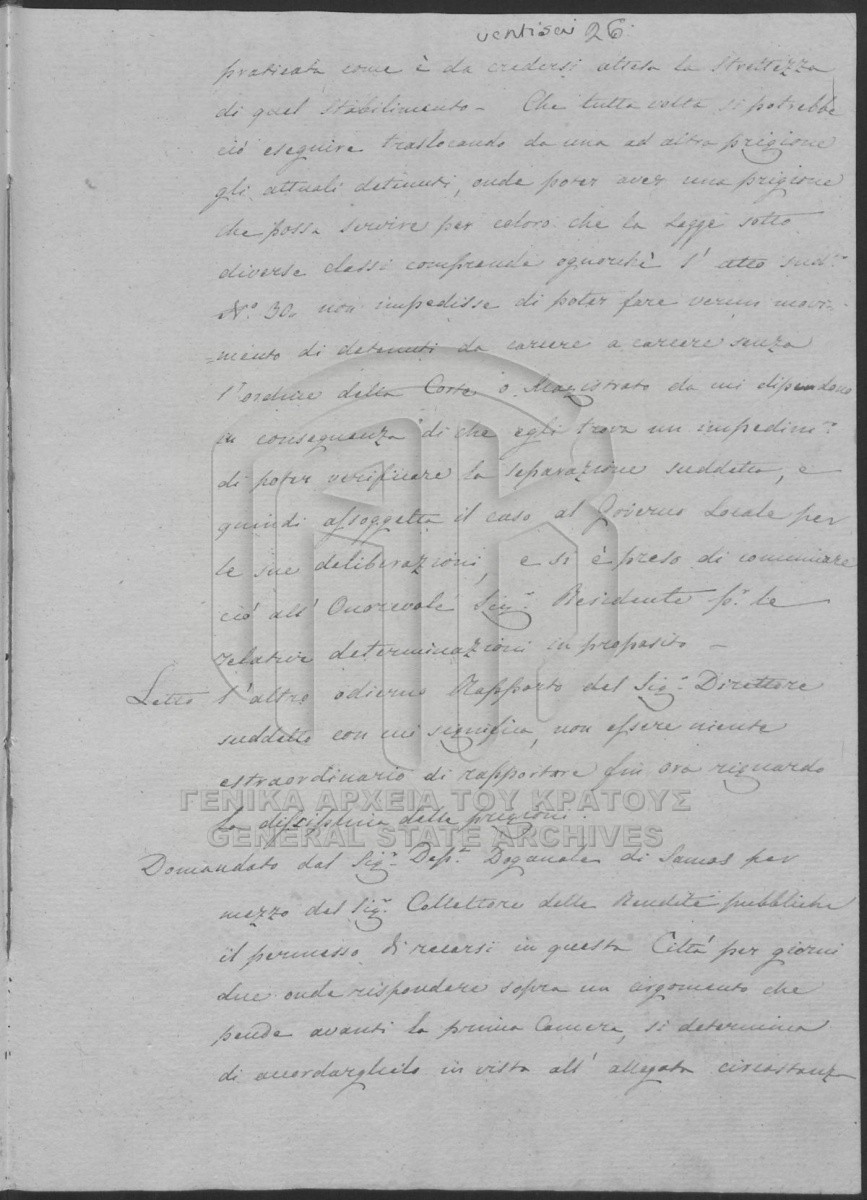 ventisei 26.
praticata come è da credersi attesa la strettezza
di quel stabilimento - Che tutta volta si potrebbe
ciò eseguire traslocando da una ad altra prigione
gli attuali detenuti, onde poter aver una prigione
che possa servire per coloro che la Legge sotto
diverse classi comprende ognorchè l'atto sud.º
Nº 30. non impedisse di poter fare verun movi-
=mento di detenuti da carcere a carcere senza
l'ordine della Corte o Magistrato da cui dipendono
in conseguenza di che egli trova un impedim.º
di poter verificare la separazione suddetta, e
quindi assoggetta il caso al Governo Locale per
le sue deliberazioni, e si è preso di comunicare
ciò all' Onorevole Sig.r Residente p.r le
relative determinazioni in proposito -
Letto l'altro odierno Rapporto del Sig.r Direttore
suddetto con cui significa, non essere niente
estraordinario di rapportare fin ora riguardo
la disciplina delle prigioni.
Domandato dal Sig.r Dep.º Doganale di Samos per
mezzo del Sig.r Collettore delle Rendite pubbliche
il permesso di recarsi in questa Città per giorni
due onde rispondere sopra un argomento che
pende avanti la prima Camera, si determina
di accordarghilo in vista all' allegata circostanza
ΓΕΝΙΚΑ ΑΡΧΕΙΑ ΤΟΥ ΚΡΑΤΟΥΣ
GENERAL STATE ARCHIVES